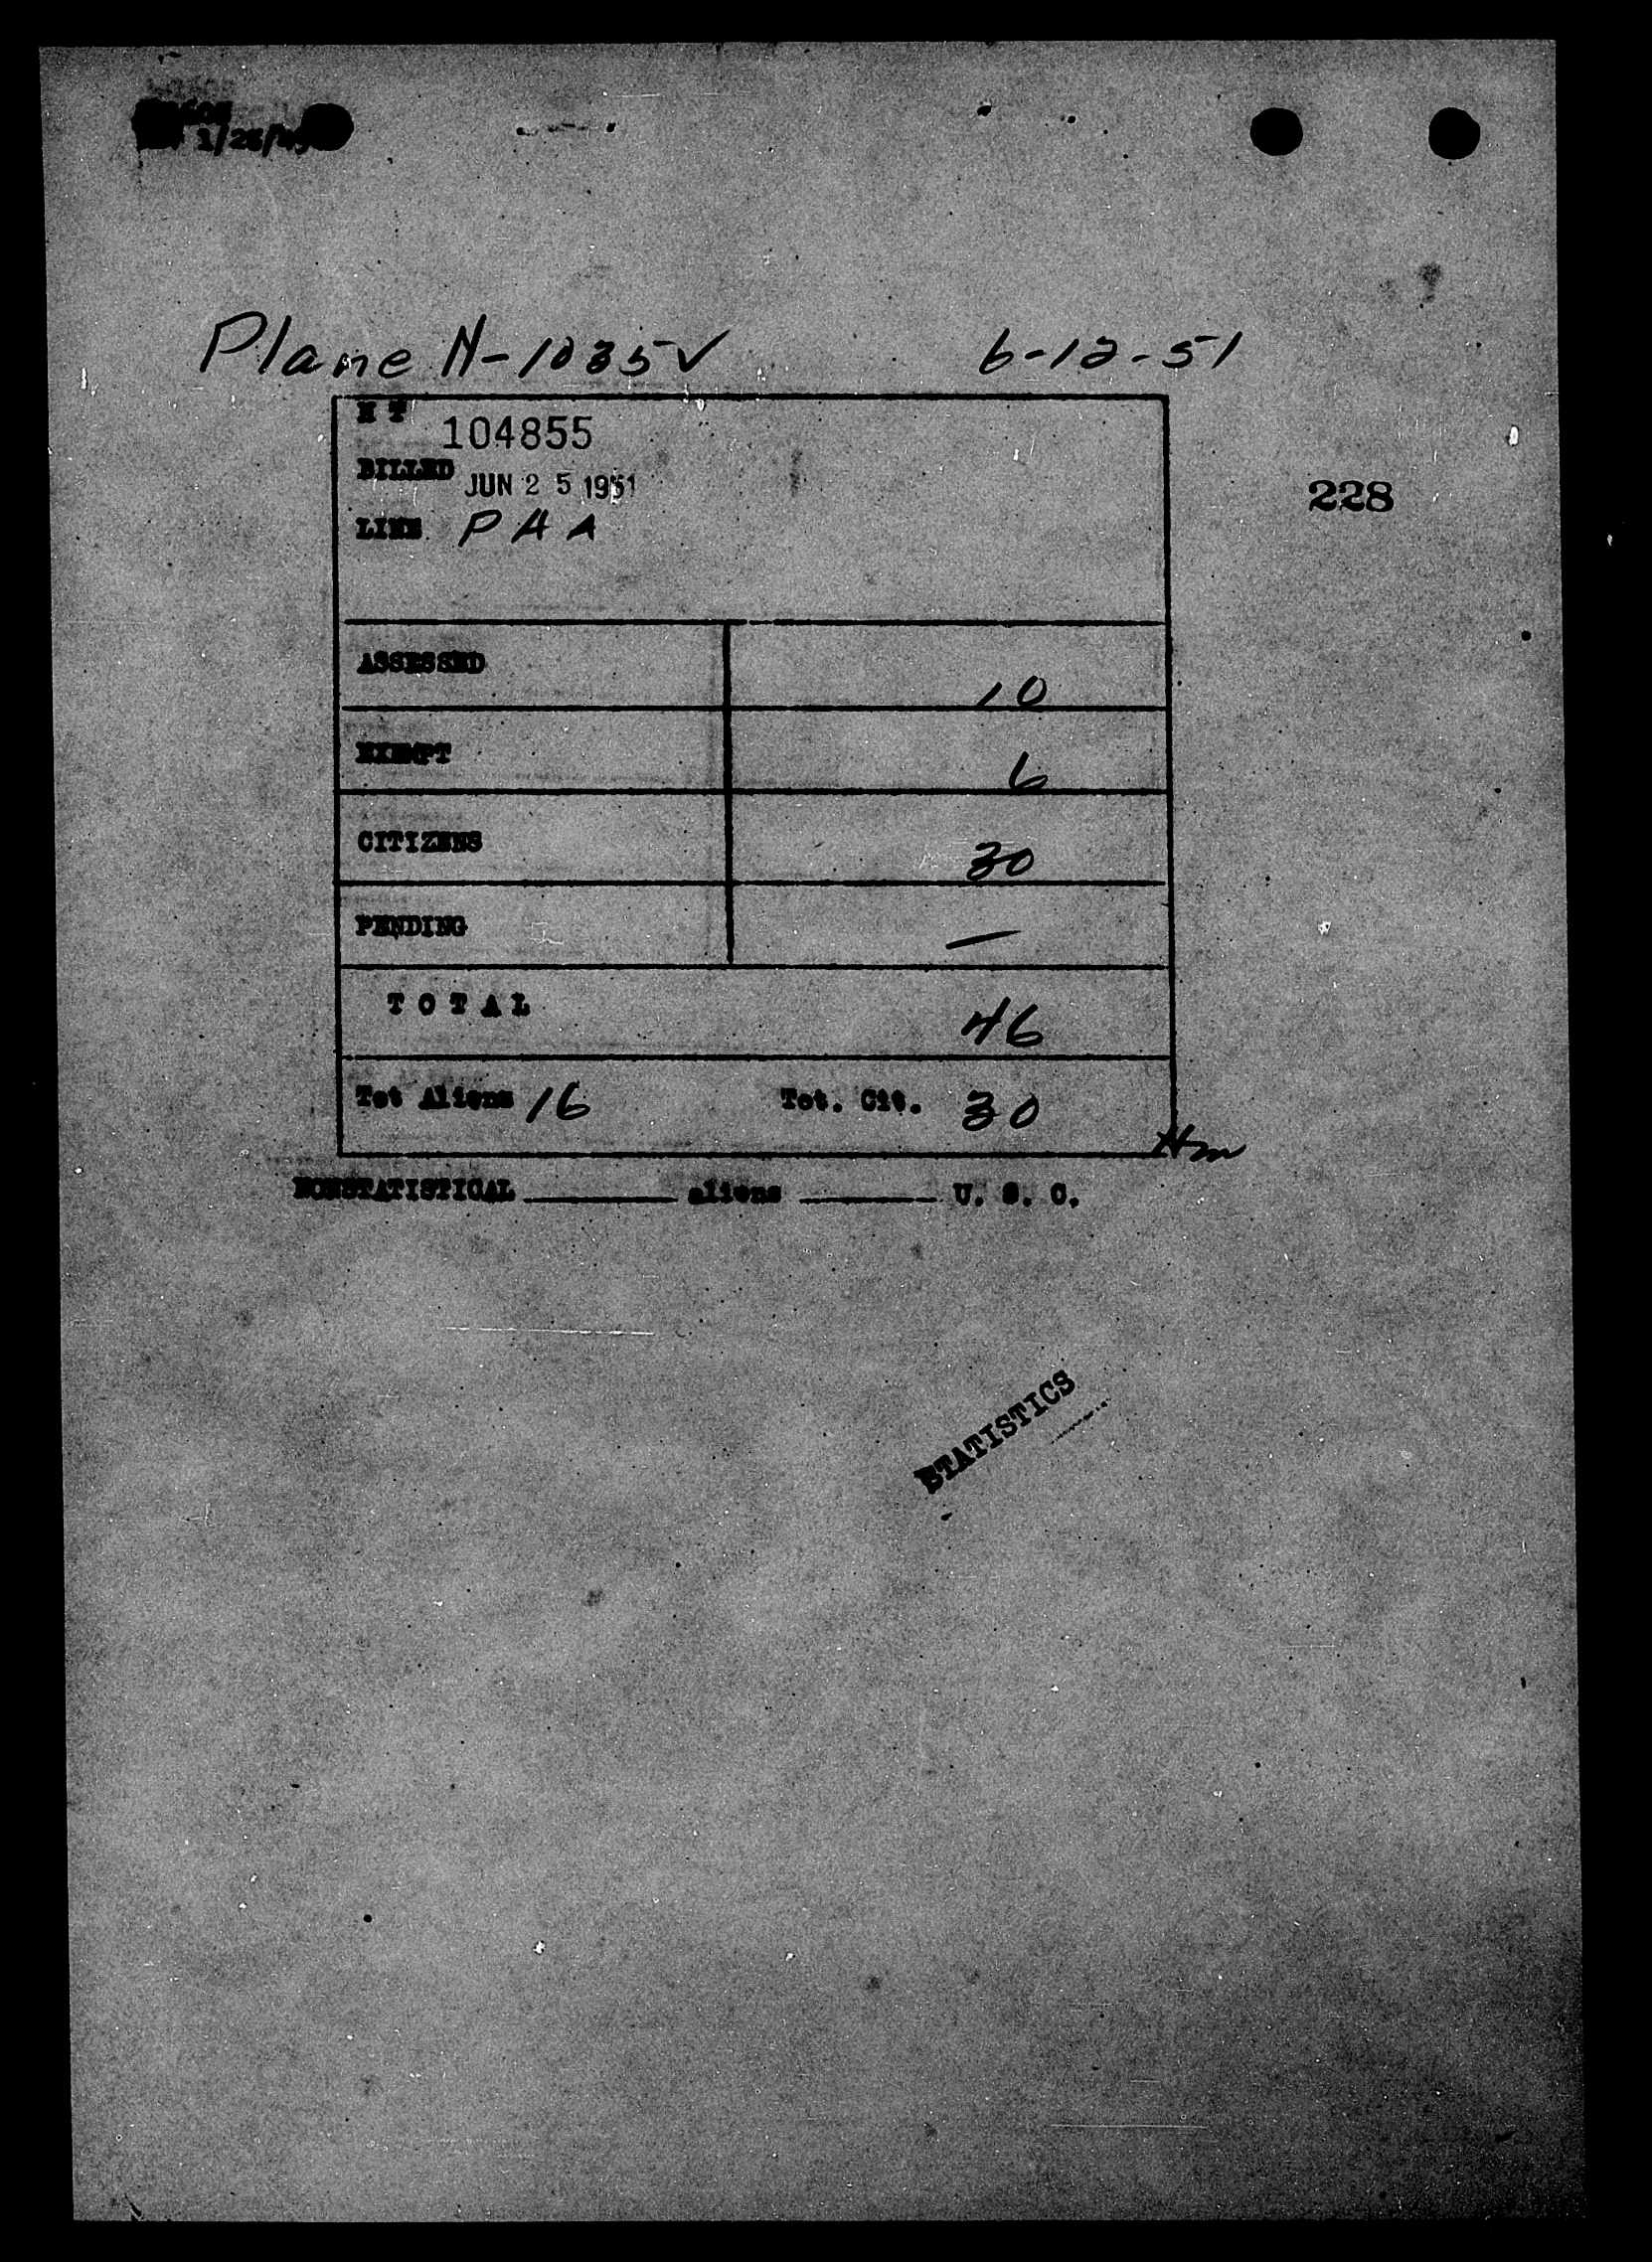 1/25/49
Plane N-1035V 6-12-51
H T 104855
BILLED JUN 25 1951
LINE PAA
228
ASSESSED 10
EXEMPT 6
CITIZENS 30
PENDING —
TOTAL 46
Tot Aliens 16 Tot. Cit. 30
Hm
NONSTATISTICAL ________ aliens ________ U. S. C.
STATISTICS